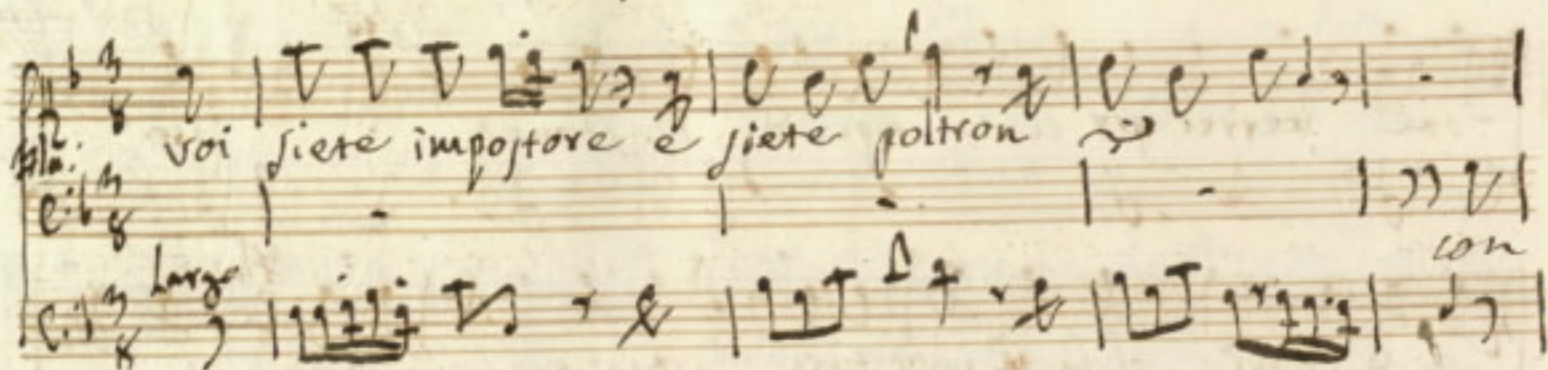 voi siete impostore e siete poltron
con
Largo